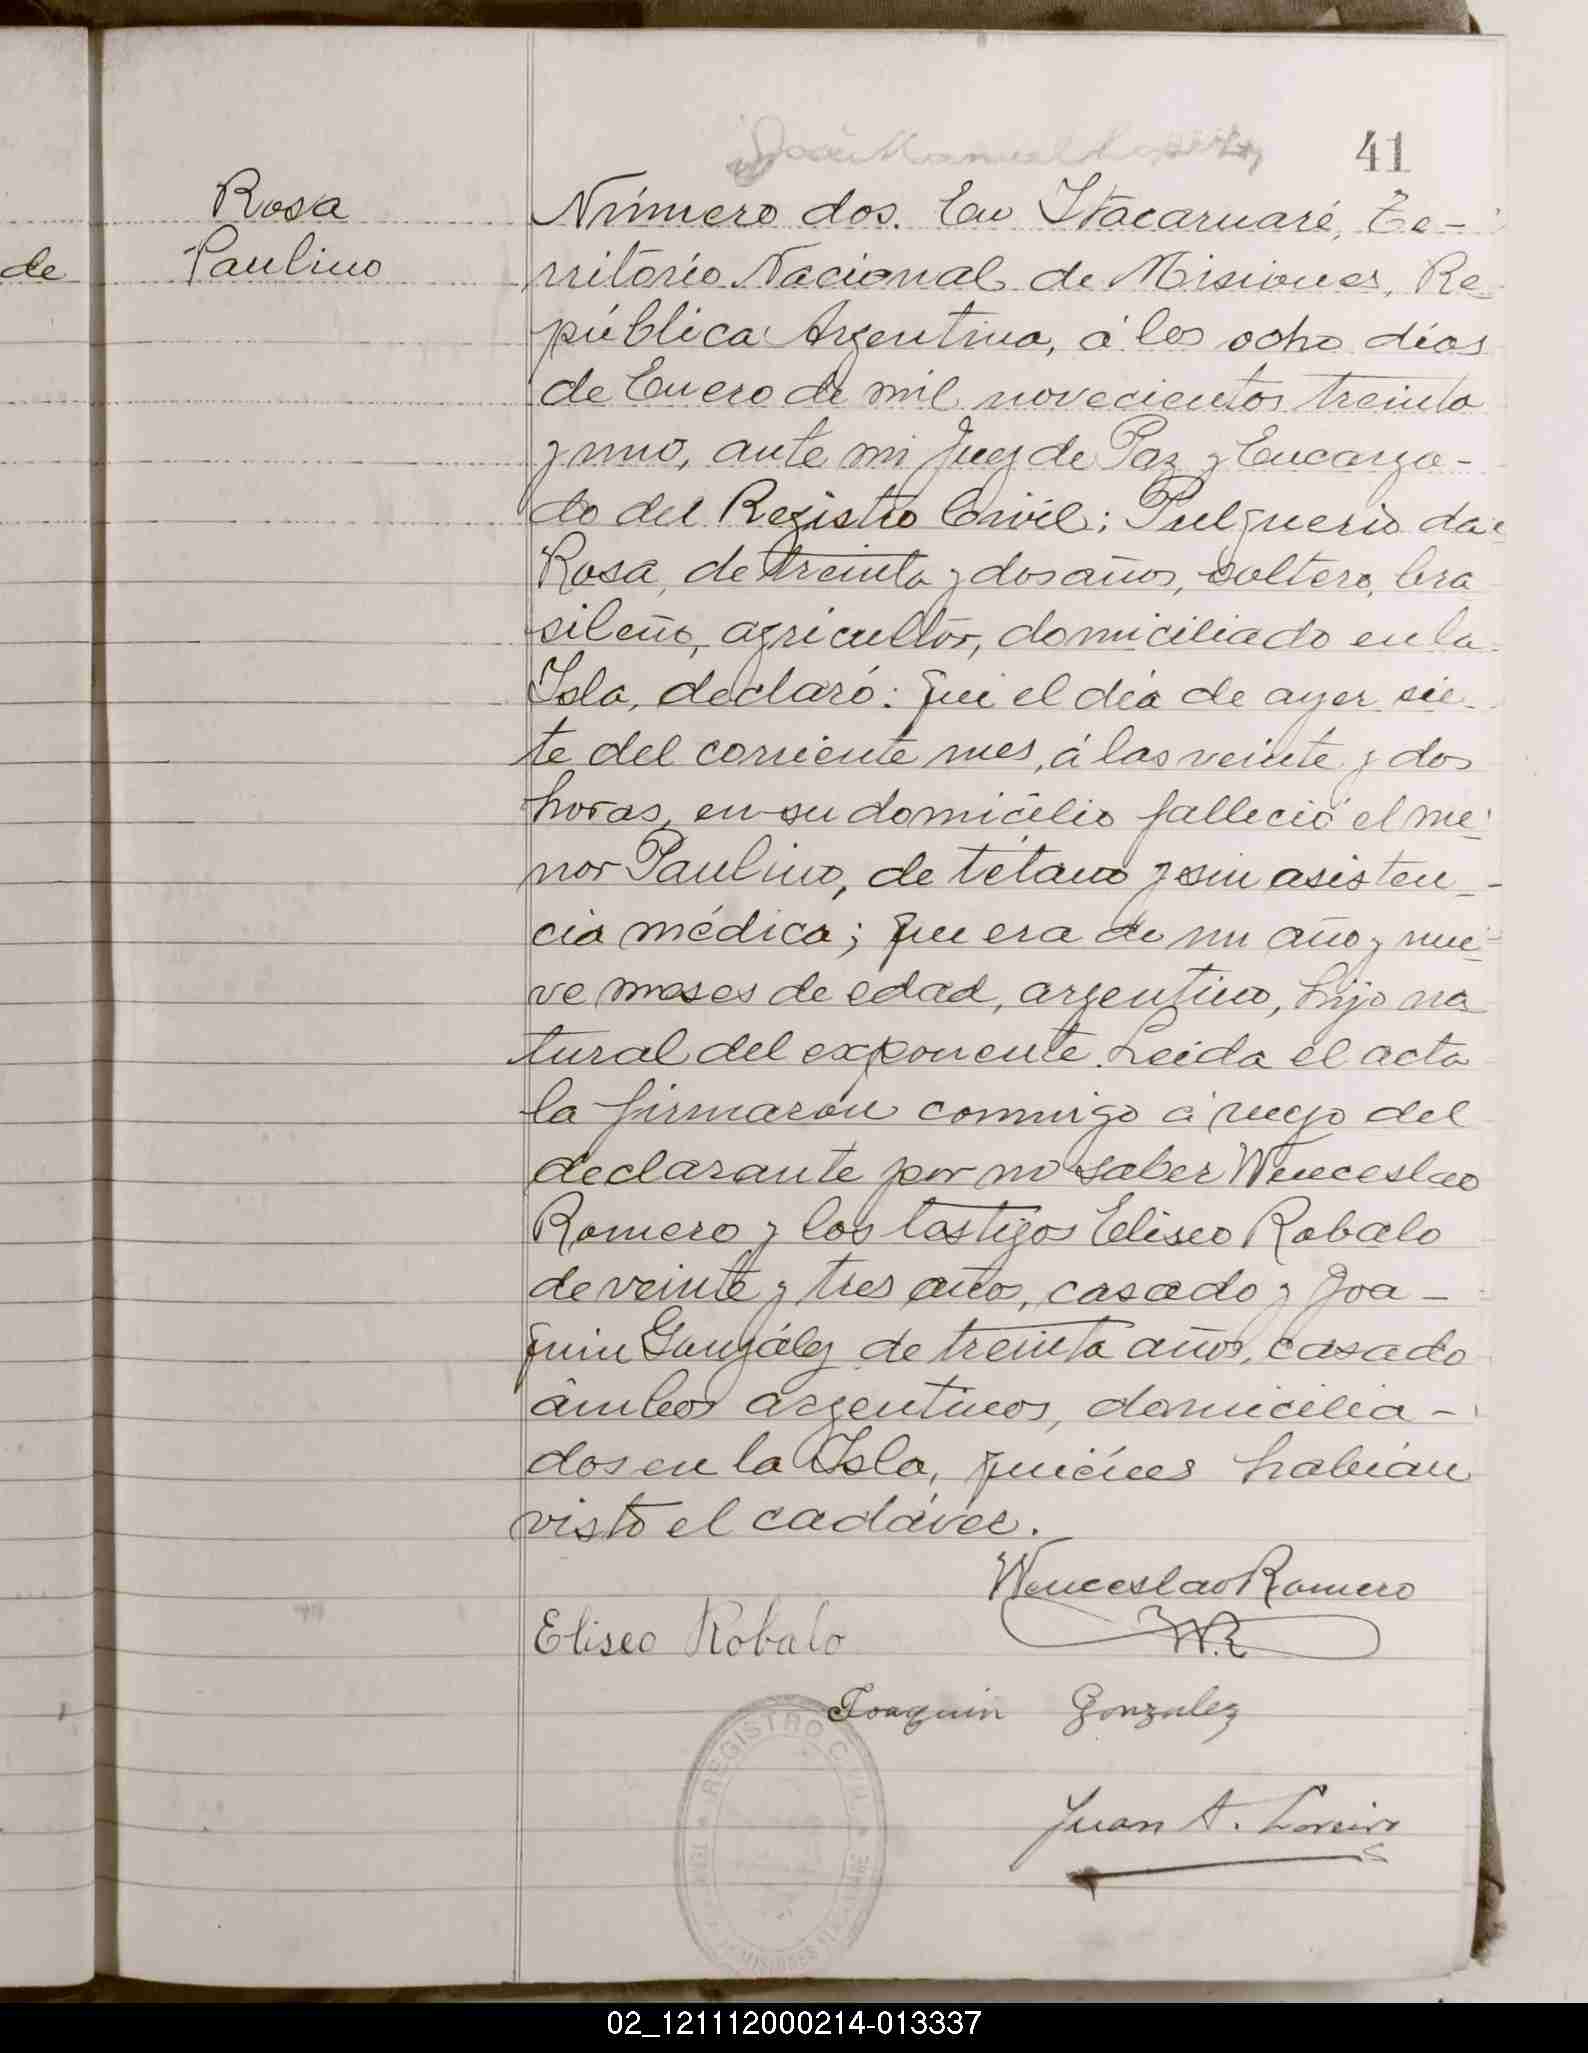 41
Rosa
Paulino
de
Número dos. En Itacaruaré, Te-
rritorio Nacional de Misiones, Re-
pública Argentina, á los ocho días
de Enero de mil novecientos treinta
y uno, ante mi Juez de Paz y Encarga-
do del Registro Civil; Pulguerio da
Rosa, de treinta y dos años, soltero, bra
sileño, agricultor, domiciliado en la
Isla, declaró: que el día de ayer sie-
te del corriente mes, á las veinte y dos
horas, en su domicilio falleció el me-
nor Paulino, de tétano y sin asisten-
cia médica; que era de un año y nue-
ve meses de edad, argentino, hijo na
tural del exponente. Leida el acta
la firmaron conmigo á ruego del
declarante por no saber Wenceslao
Romero y los testigos Eliseo Robalo
de veinte y tres años, casado y Joa-
quin González de treinta años, casado
ámbos argentinos, domicilia-
dos en la Isla, quiénes habían
visto el cadáver.
Wenceslao Romero
W.R
Eliseo Robalo
Joaquin Gonzalez
REGISTRO CIVIL
MISIONES
Juan A.
02_121112000214-013337